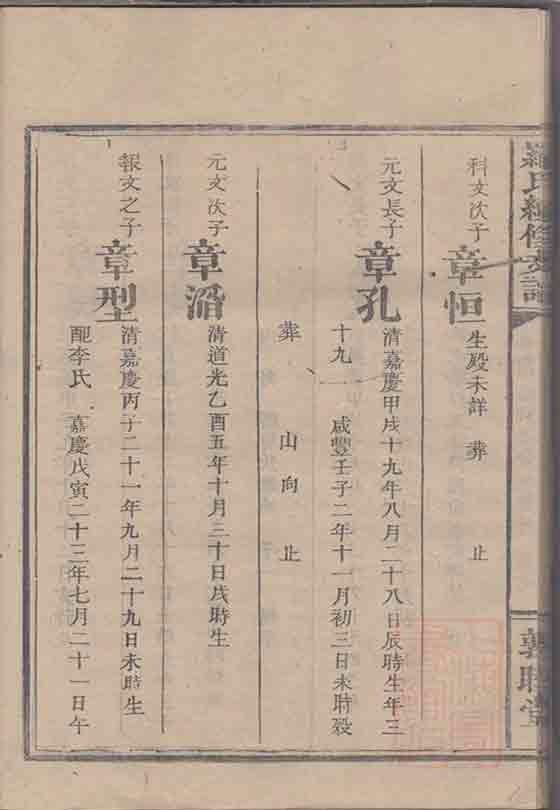 羅氏續修支譜
敦睦堂
科文次子
章恒
生殁未詳 葬 止
元文長子
章孔
清嘉慶甲戌十九年八月二十八日辰時生年三
十九 咸豐壬子二年十一月初三日未時殁
葬 山 向 止
元文次子
章滔
清道光乙酉五年十月三十日戌時生
報文之子
章型
清嘉慶丙子二十一年九月二十九日未時生
配李氏 嘉慶戊寅二十三年七月二十一日午